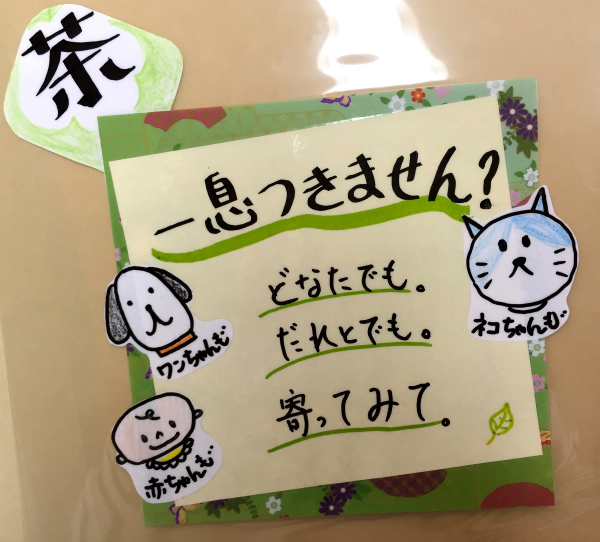 茶
一息つきません?
どなたでも。
だれとでも。
寄ってみて。
ネコちゃんも
ワンちゃんも
赤ちゃんも